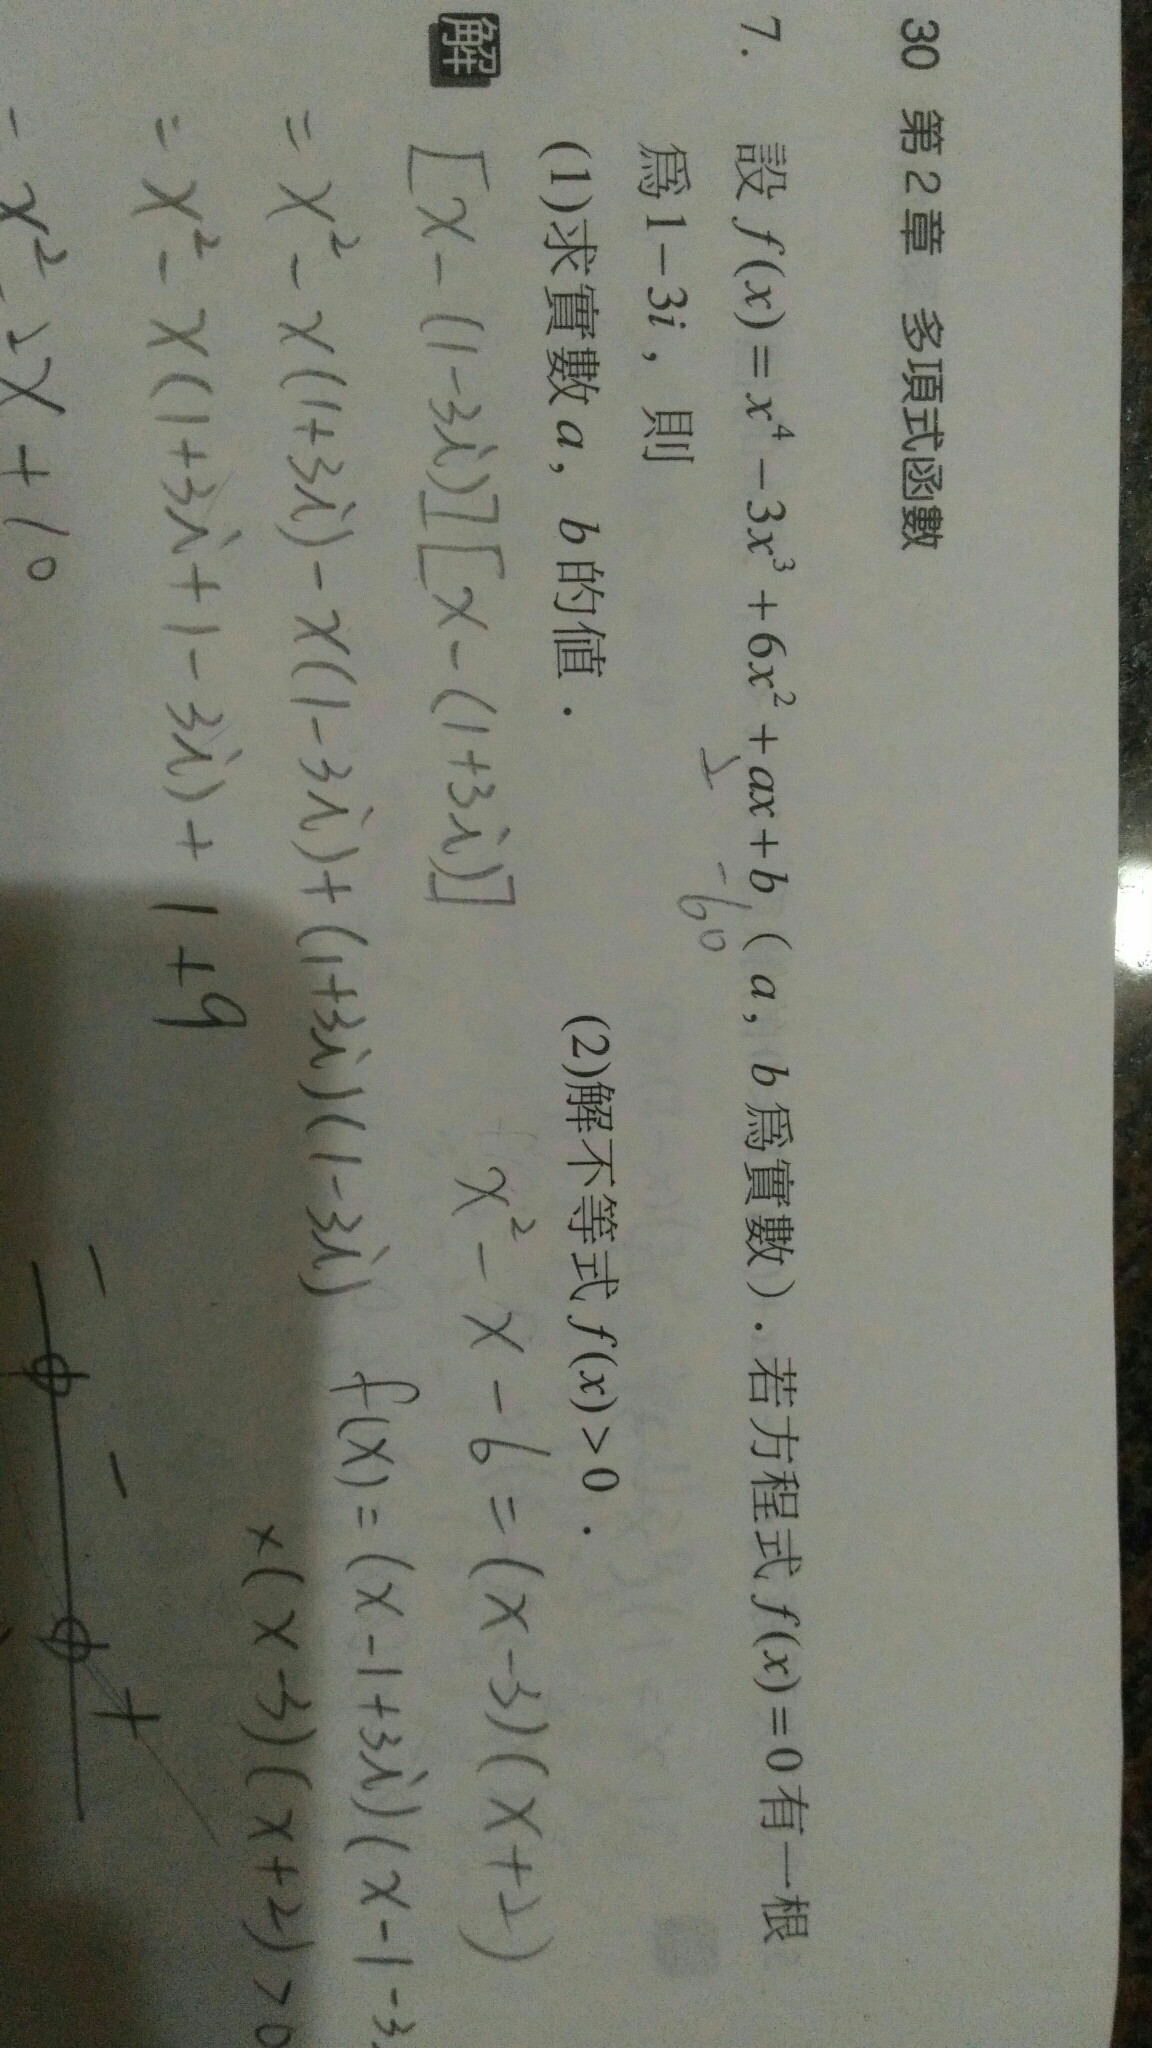 30 第2章 多項式函數
7. 設 f(x)=x⁴−3x³+6x²+ax+b（a，b為實數）．若方程式 f(x)=0有一根
2 -60
為1−3i，則
(1)求實數a，b的值． (2)解不等式 f(x)>0．
解
[x-(1-3i)][x-(1+3i)] x²-x-6=(x-3)(x+2)
=x²-x(1+3i)-x(1-3i)+(1+3i)(1-3i) f(x)=(x-1+3i)(x-1-3
x(x-3)(x+2)>0
=x²-x(1+3i+1-3i)+1+9
- - +
=x²-2x+10